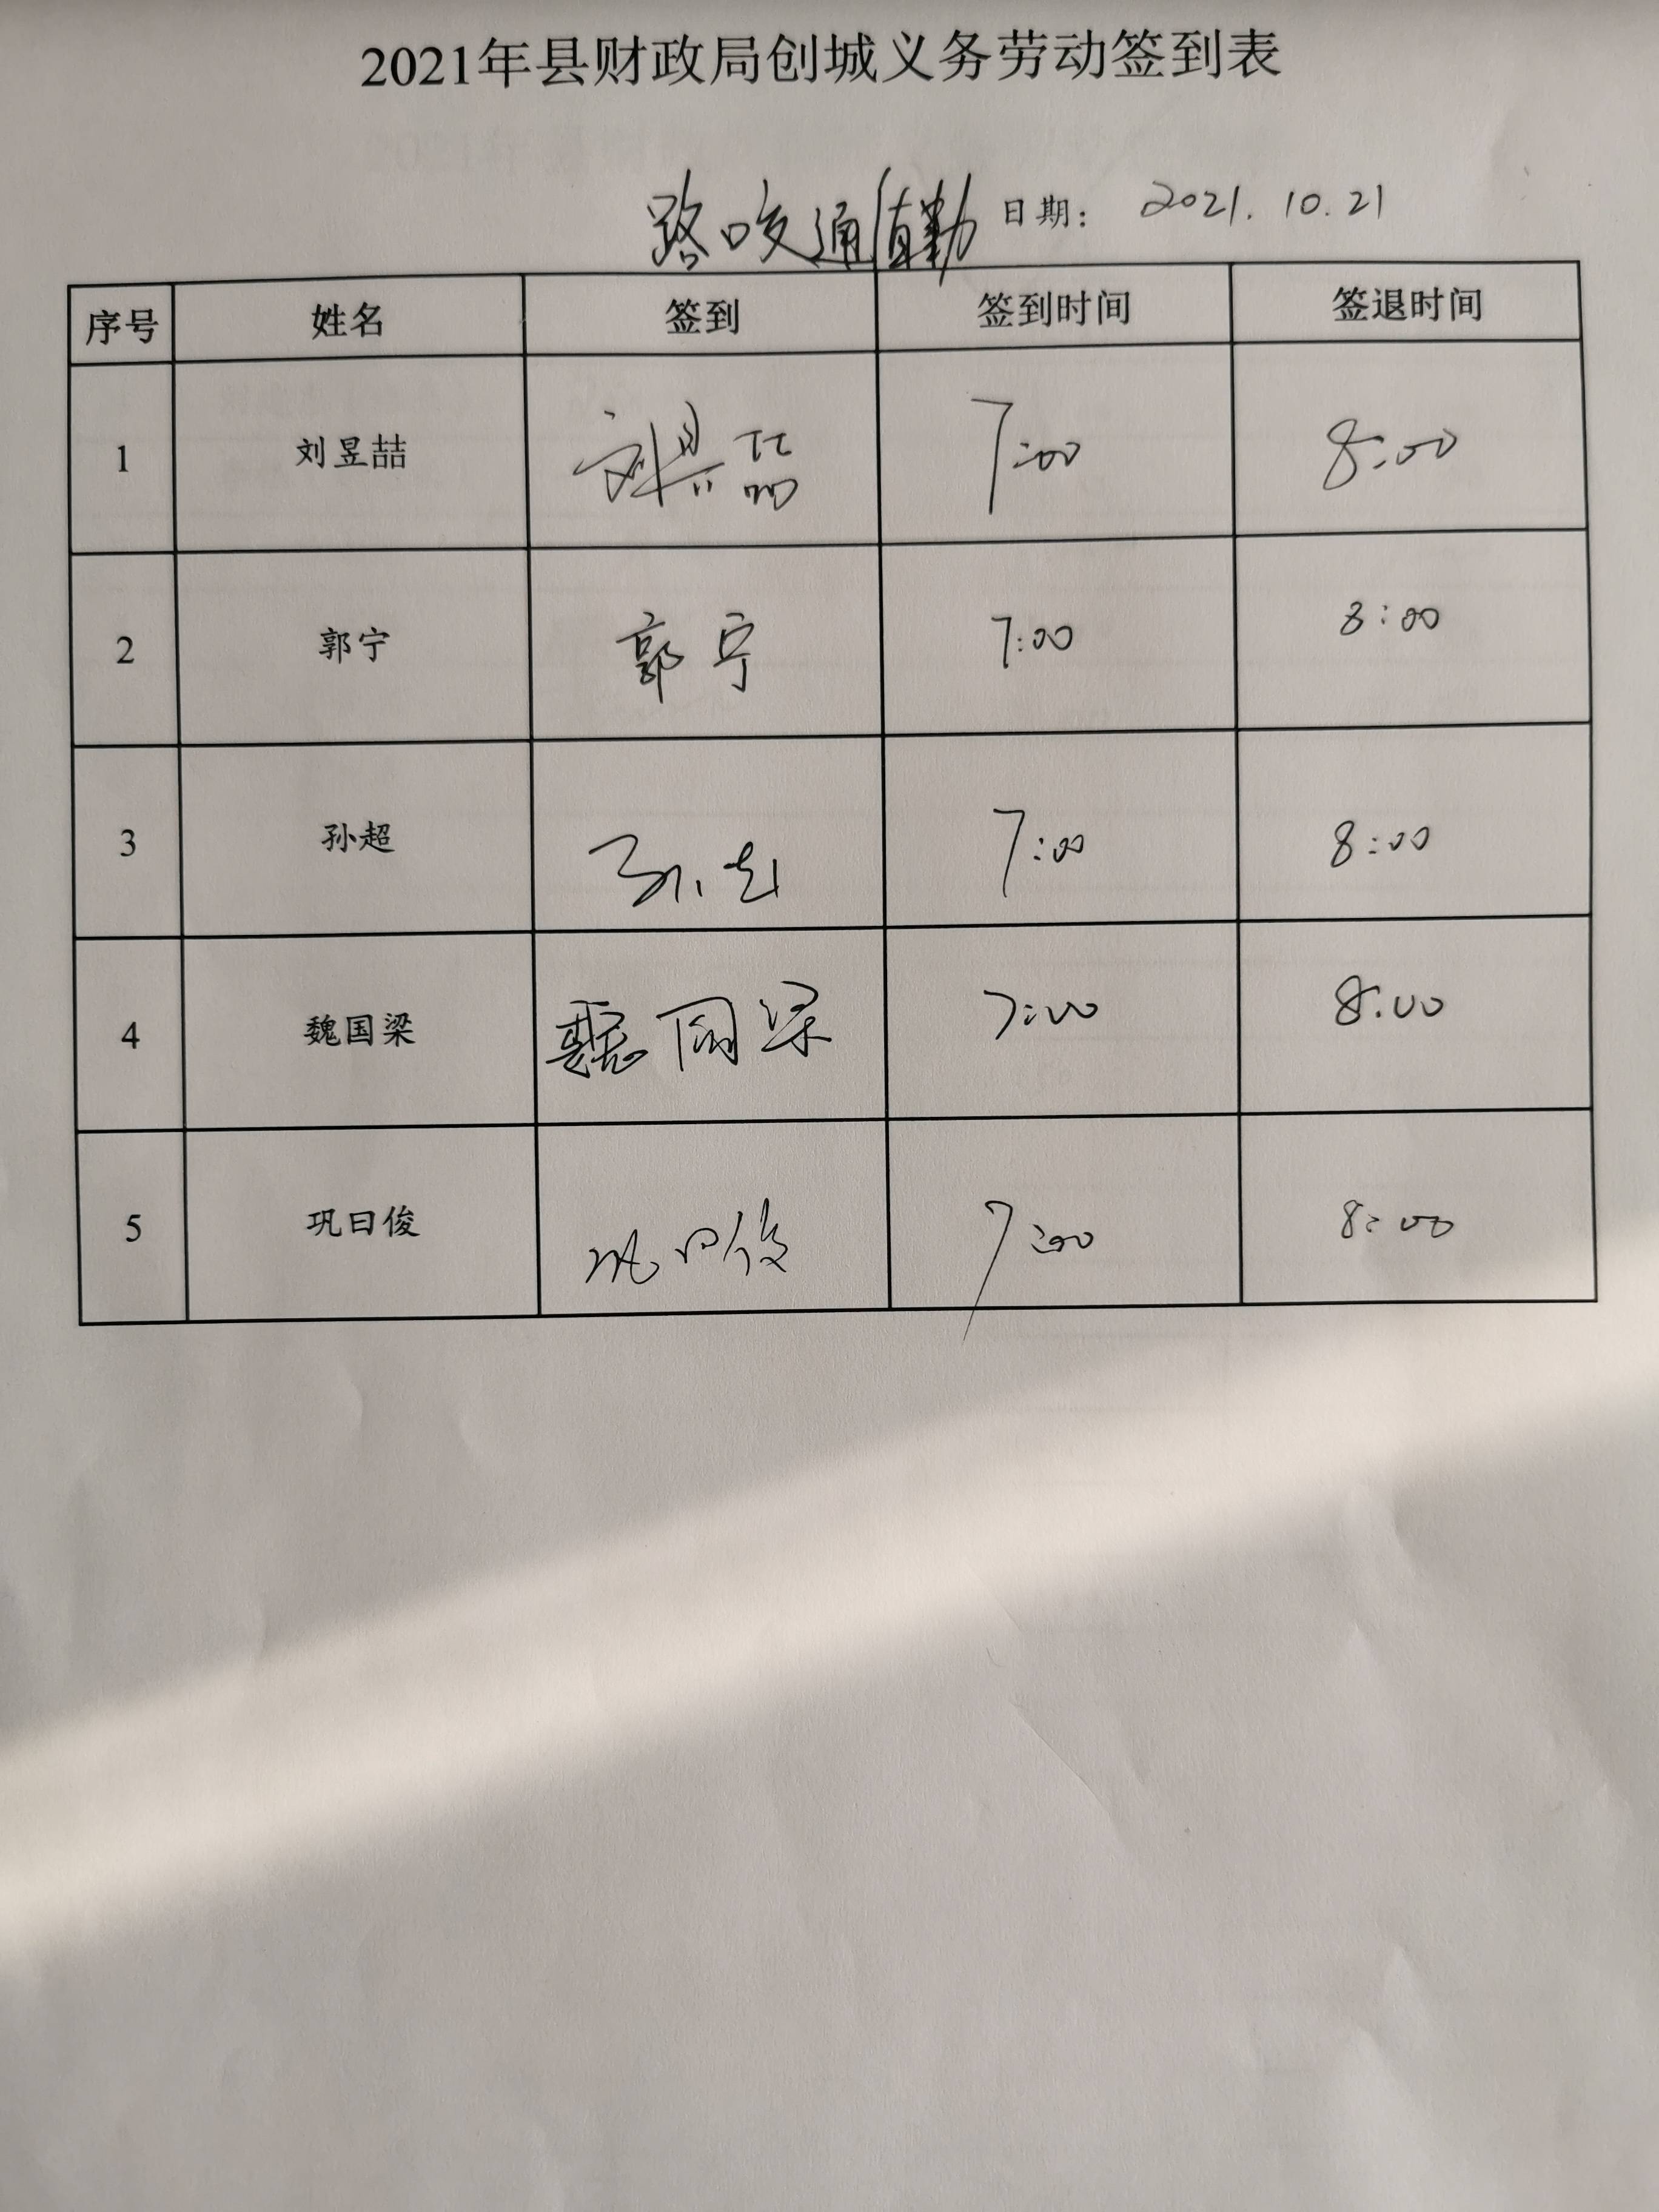 2021年县财政局创城义务劳动签到表
路口交通值勤 日期： 2021.10.21
序号 姓名 签到 签到时间 签退时间
1 刘昱喆 刘昱喆 7:00 8:00
2 郭宁 郭宁 7:00 8:00
3 孙超 孙超 7:00 8:00
4 魏国梁 魏国梁 7:00 8:00
5 巩日俊 巩日俊 7:00 8:00